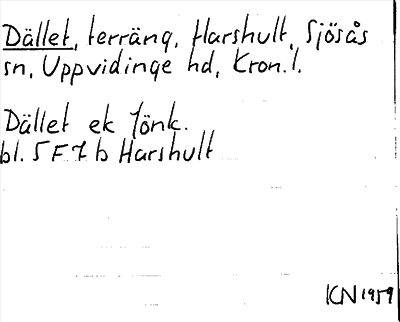 Dället, terräng, Harshult, Sjösås
sn, Uppvidinge hd, Kron. l.
Dället ek Jönk.
bl. 5 F 7 b Harshult
KN 1959